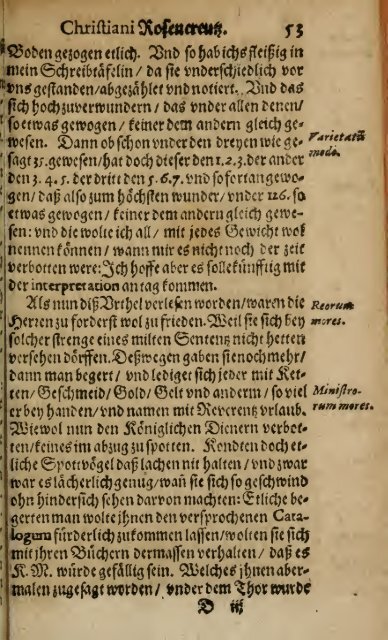 Christiani Rosencreutz. 53
Boden gezogen etlich. Vnd so hab ichs fleißig in
mein Schreibtäfelin / da sie vnderschiedlich vor
vns gestanden / abgezählet vnd notiert. Vnd das
sich hoch zuverwundern / das vnder allen denen /
so etwas gewogen / keiner dem andern gleich ge-
wesen. Dann ob schon vnder den dreyen wie ge-
Varietatū
sagt 35. gewesen / hat doch dieser den 1. 2. 3. der ander
modo.
den 3. 4. 5. der dritt den 5. 6. 7. vnd so fortan gewo-
gen / daß also zum höchsten wunder / vnder 126. so
etwas gewogen / keiner dem andern gleich gewe-
sen: vnd die wolte ich all / mit jedes Gewicht wol
nennen können / wann mir es nicht noch der zeit
verbotten were: Ich hoffe aber es solle künfftig mit
der interpretation an tag kommen.
Als nun diß Vrthel verlesen worden / waren die
Reorum
Herren zu forderst wol zu frieden. Weil sie sich bey
mores.
solcher strenge eines milten Sentenz nicht hetten
versehen dörffen. Deßwegen gaben sie noch mehr /
dann man begert / vnd lediget sich jeder mit Ket-
ten / Geschmeid / Gold / Gelt vnd anderm / so viel
Ministro-
er bey handen / vnd namen mit Reverenz vrlaub.
rum mores.
Wiewol nun den Königlichen Dienern verbot-
ten / keines im abzug zu spotten. Kondten doch et-
liche Spottvögel daß lachen nit halten / vnd zwar
war es lächerlich genug / wañ sie sich so geschwind
ohn hindersich sehen darvon machten: Etliche be-
gerten man wolte jhnen den versprochenen Cata-
logum fürderlich zukommen lassen / wolten sie sich
mit jhren Büchern dermassen verhalten / daß es
K. M. würde gefällig sein. Welches jhnen aber-
malen zugesagt worden / vnder dem Thor wurde
D iij